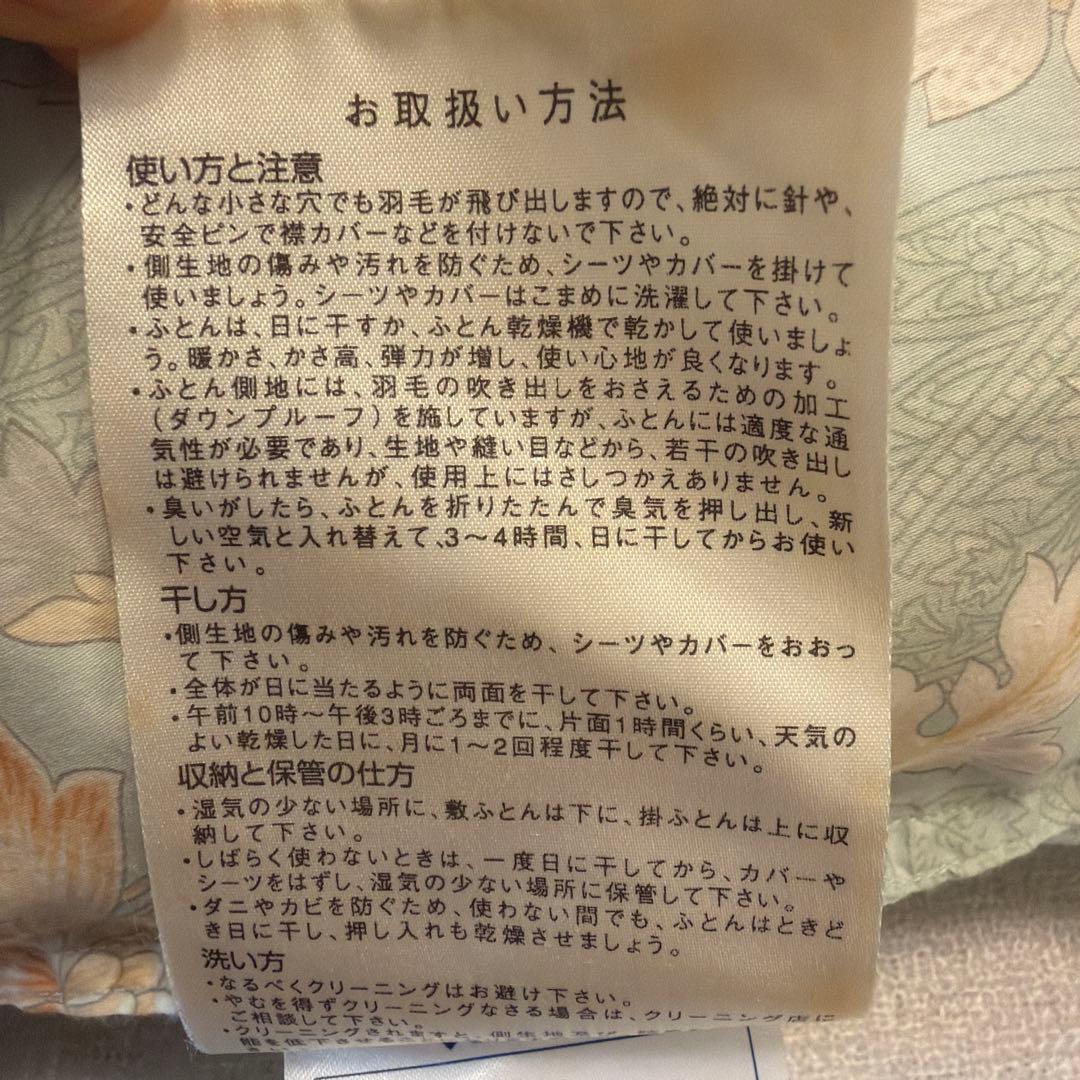 お取扱い方法
使い方と注意
・どんな小さな穴でも羽毛が飛び出しますので、絶対に針や、
安全ピンで襟カバーなどを付けないで下さい。
・側生地の傷みや汚れを防ぐため、シーツやカバーを掛けて
使いましょう。シーツやカバーはこまめに洗濯して下さい。
・ふとんは、日に干すか、ふとん乾燥機で乾かして使いましょ
う。暖かさ、かさ高、弾力が増し、使い心地が良くなります。
・ふとん側地には、羽毛の吹き出しをおさえるための加工
(ダウンプルーフ)を施していますが、ふとんには適度な通
気性が必要であり、生地や縫い目などから、若干の吹き出し
は避けられませんが、使用上にはさしつかえありません。
・臭いがしたら、ふとんを折りたたんで臭気を押し出し、新
しい空気と入れ替えて、3〜4時間、日に干してからお使い
下さい。
干し方
・側生地の傷みや汚れを防ぐため、シーツやカバーをおおっ
て下さい。
・全体が日に当たるように両面を干して下さい。
・午前10時〜午後3時ごろまでに、片面1時間くらい、天気の
よい乾燥した日に、月に1〜2回程度干して下さい。
収納と保管の仕方
・湿気の少ない場所に、敷ふとんは下に、掛ふとんは上に収
納して下さい。
・しばらく使わないときは、一度日に干してから、カバーや
シーツをはずし、湿気の少ない場所に保管して下さい。
・ダニやカビを防ぐため、使わない間でも、ふとんはときど
き日に干し、押し入れも乾燥させましょう。
洗い方
・なるべくクリーニングはお避け下さい。
・やむを得ずクリーニングなさる場合は、クリーニング店に
ご相談して下さい。
・クリーニングされますと、側生地及び
能を低下させ